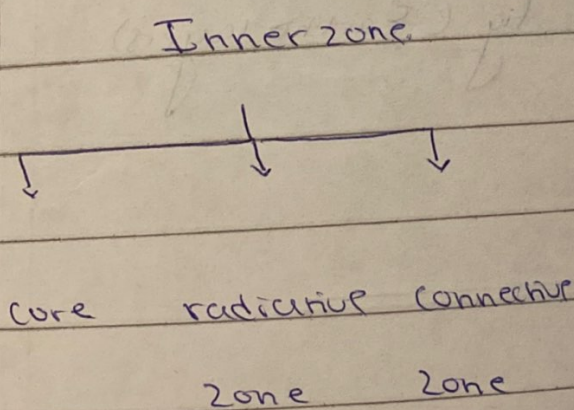 Inner zone
core radiative connective
zone zone